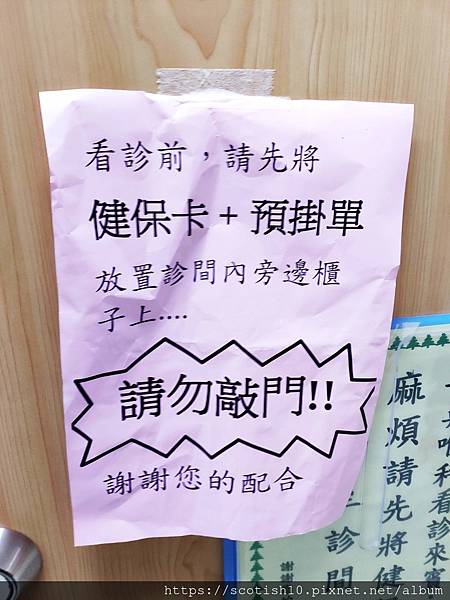 看診前，請先將
健保卡 + 預掛單
放置診間內旁邊櫃
子上....
請勿敲門!!
謝謝您的配合
科看診來
麻煩請先將健
診間
謝謝
https://scotish10.pixnet.net/album